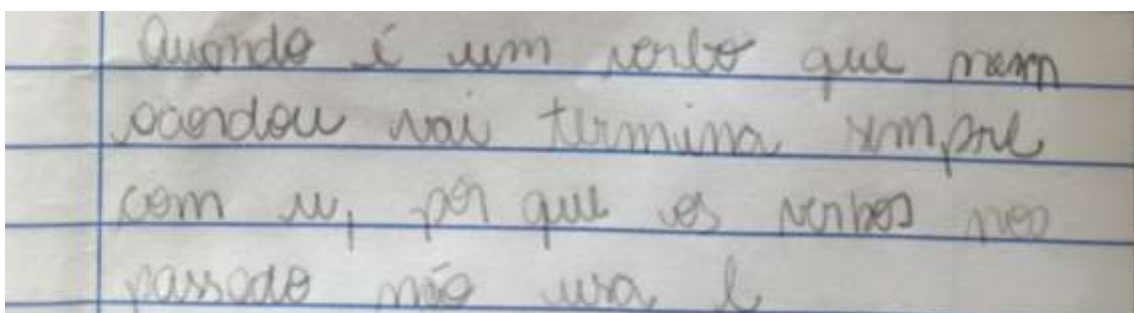 Quando é um verbo que nem
acordou vai termina sempre
com u, por que os verbos nos
passado não usa l